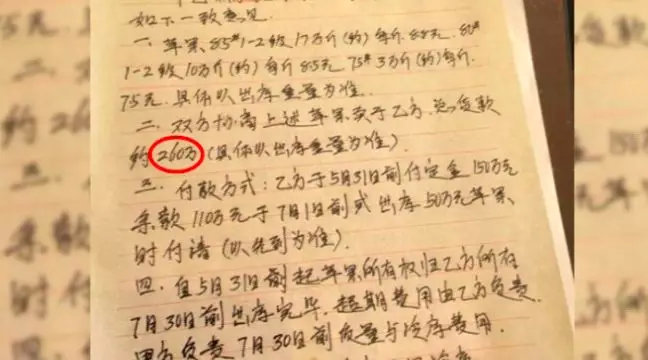 如下一致意见
一、苹果85#1-2级17万斤(约)每斤8.8元.80#
1-2级10万斤(约)每斤8.5元.75#3万斤(约)每斤.
7.5元.具体以出库重量为准.
二、双方协商上述苹果卖于乙方,总货款
约260万(具体以出库重量为准).
三、付款方式:乙方于5月31日前付定金150万元
余款110万元于7月1日前或出库50万元苹果
时付清(以先到为准).
四、自5月31日前起苹果所有权归乙方所有
7月30日前出库完毕.超期费用由乙方负责.
甲方负责7月30日前质量与冷库费用.